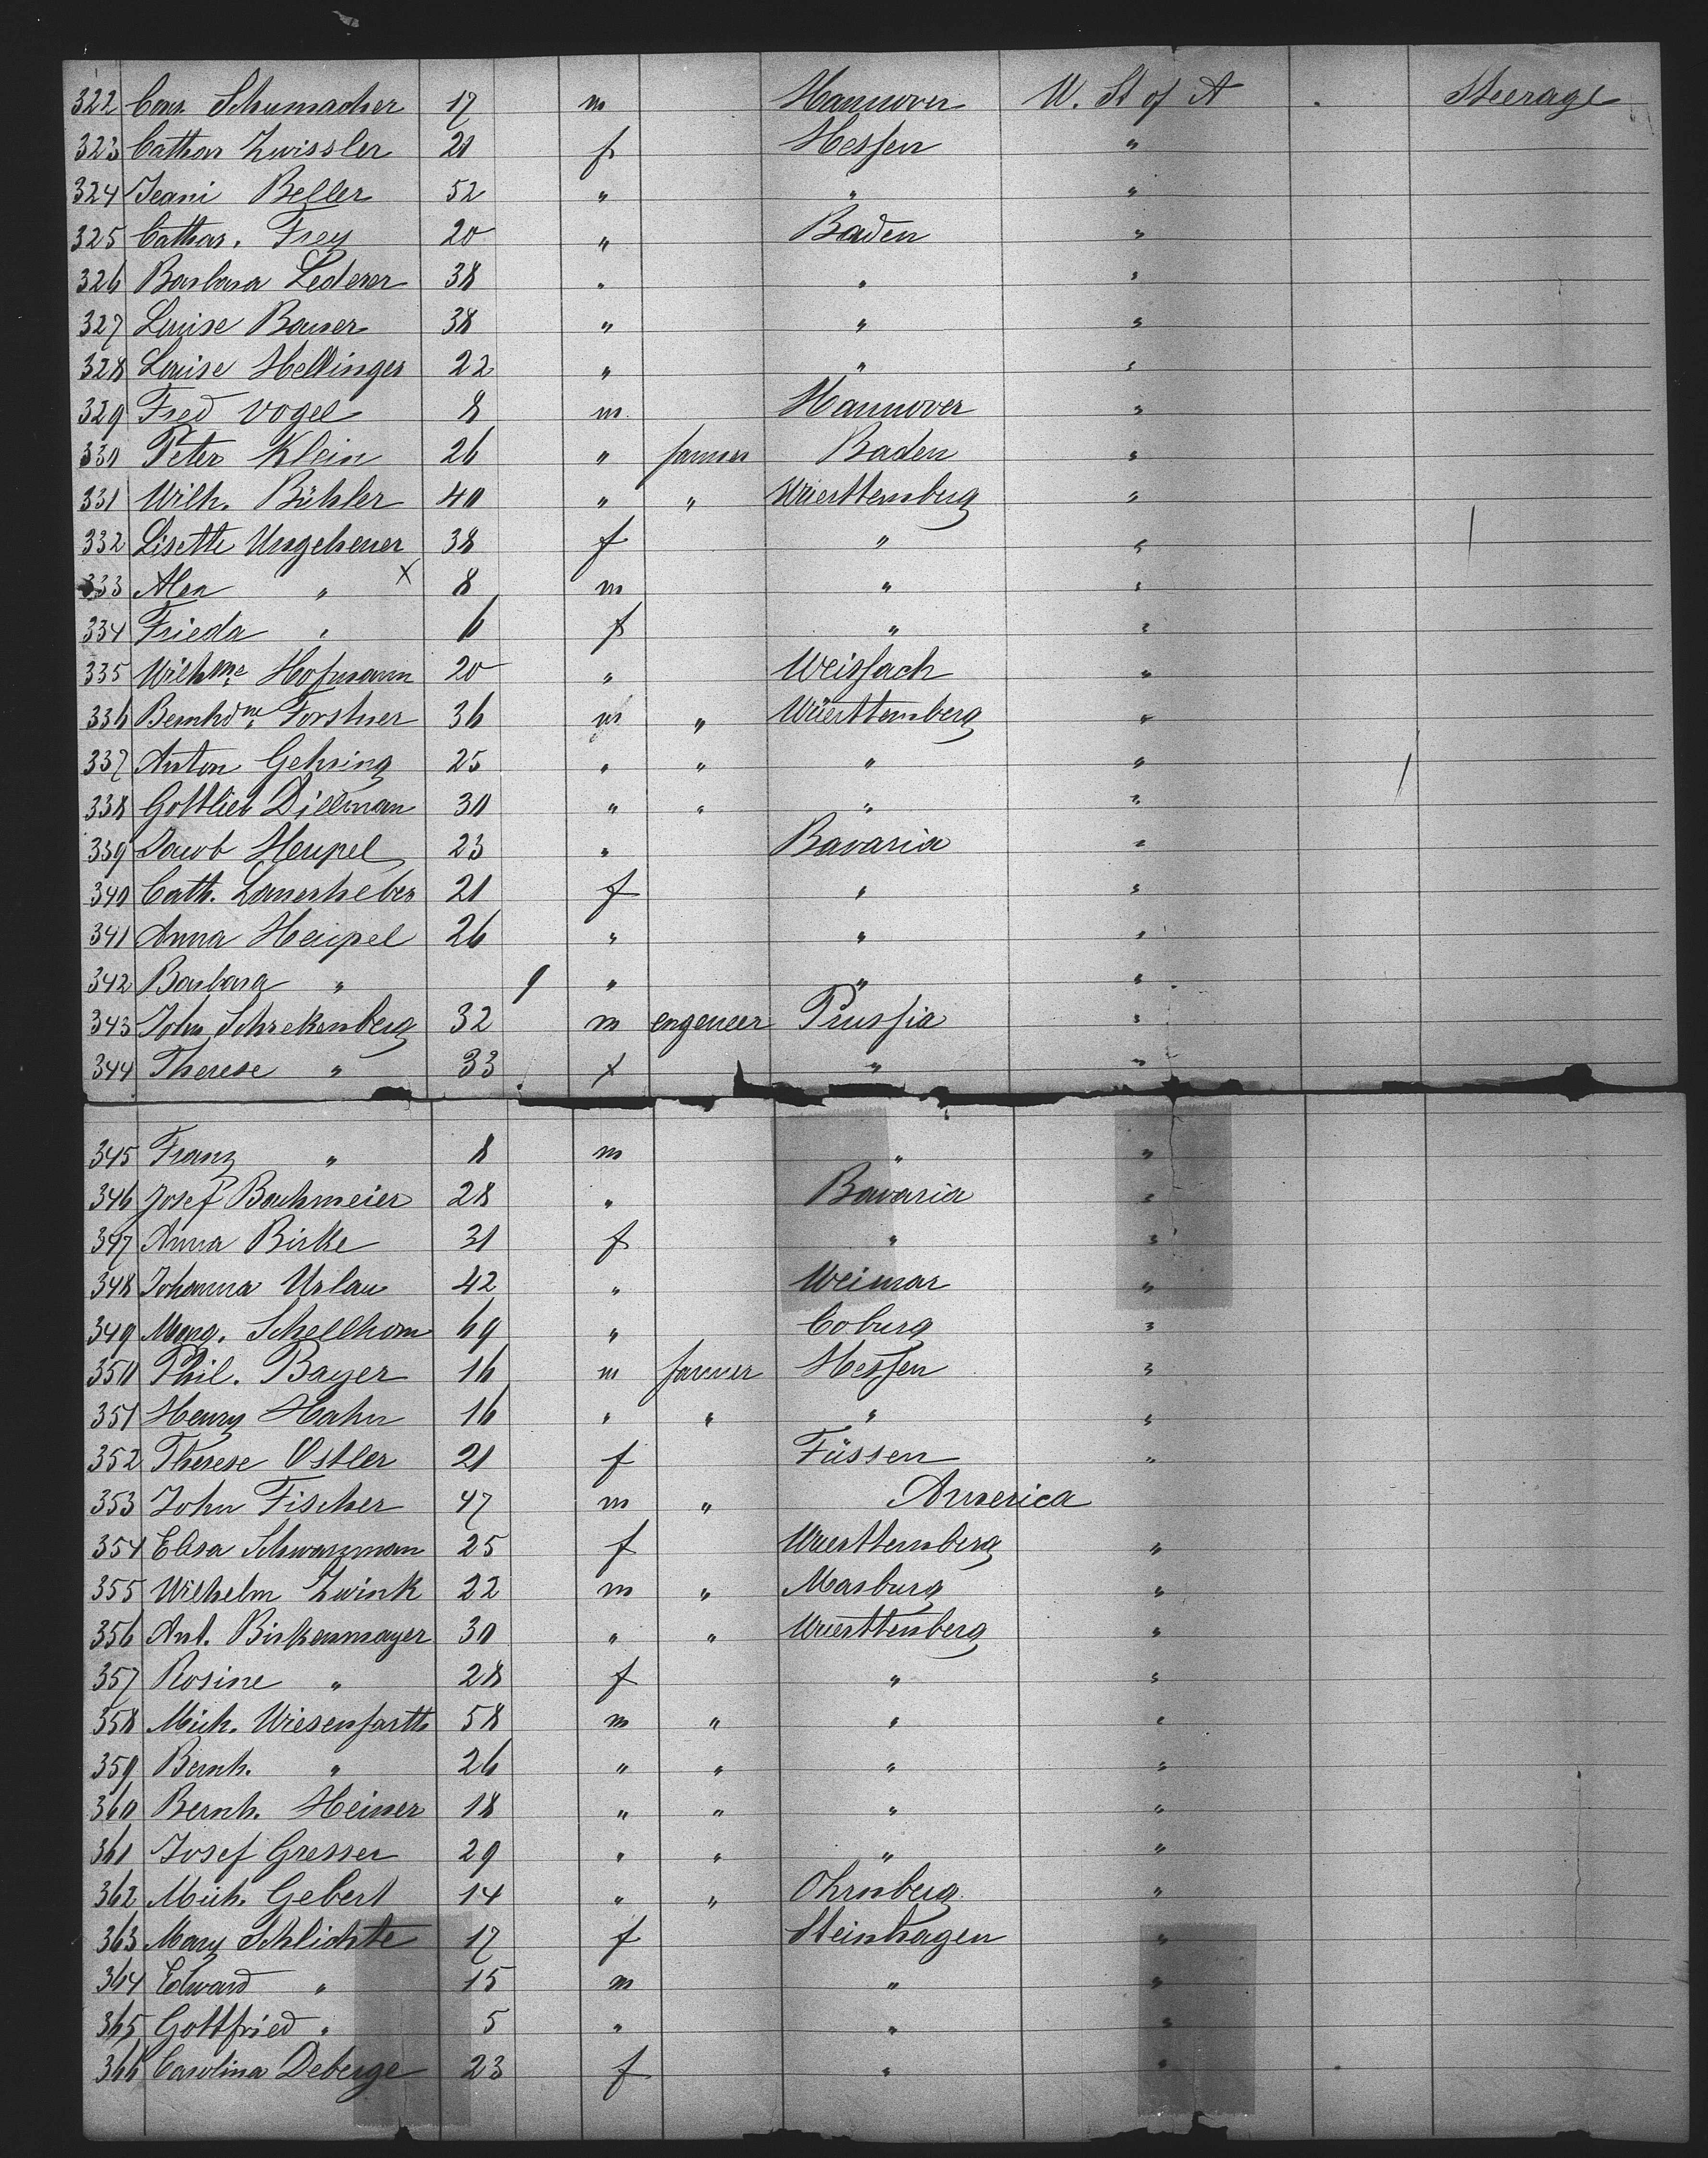 322 Con. Schumacher 17 m Hannover U. St of A Steerage
323 Cathar Zwissler 21 f Hessen "
324 Jeani Beller 52 " " "
325 Cathar. Frey 20 " Baden "
326 Barbara Lederer 38 " " "
327 Luise Bauser 38 " " "
328 Louise Hellinger 22 " " "
329 Fred Vogel 8 m Hannover "
330 Peter Klein 26 " farmer Baden "
331 Wilh. Bühler 40 " " Wuerttemberg "
332 Lisette Ungeheuer 38 f " "
333 Alex " X 8 m " "
334 Frieda " 6 f " "
335 Wilhme Hofmann 20 " Weissach "
336 Bernhdne Forstner 36 m " Wüerttemberg "
337 Anton Gehring 25 " " " "
338 Gottlieb Dillman 30 " " " "
339 Jacob Heupel 23 " Bavaria "
340 Cath. Lauerheber 21 f " "
341 Anna Heupel 26 " " "
342 Barbara " 9 " " "
343 John Schrekenberg 32 m engeneer Prussia "
344 Therese " 33 f " "
345 Franz " 8 m " "
346 Josef Bachmeier 28 " Bavaria "
347 Anna Birke 31 f " "
348 Johanna Urlau 42 " Weimar "
349 Marg. Schellhorn 69 " Coburg "
350 Phil. Bayer 16 m farmer Hessen "
351 Henry Hahn 16 " " " "
352 Therese Ostler 21 f Füssen "
353 John Fischer 47 m " America
354 Elisa Schwarzman 25 f Wuerttemberg "
355 Wilhelm Zwink 22 m " Marburg "
356 Ant. Birkenmayer 30 " " Wuerttenberg "
357 Rosine " 28 f " "
358 Mich. Wiesenfarth 58 m " " "
359 Bernh. " 26 " " " "
360 Bernh. Heiner 18 " " " "
361 Josef Gresser 29 " " " "
362 Mich. Gebert 14 " " Ohrnberg "
363 Mary Schlichte 17 f Steinhagen "
364 Edward " 15 m " "
365 Gottfried " 5 " " "
366 Carolina Deberge 23 f " "